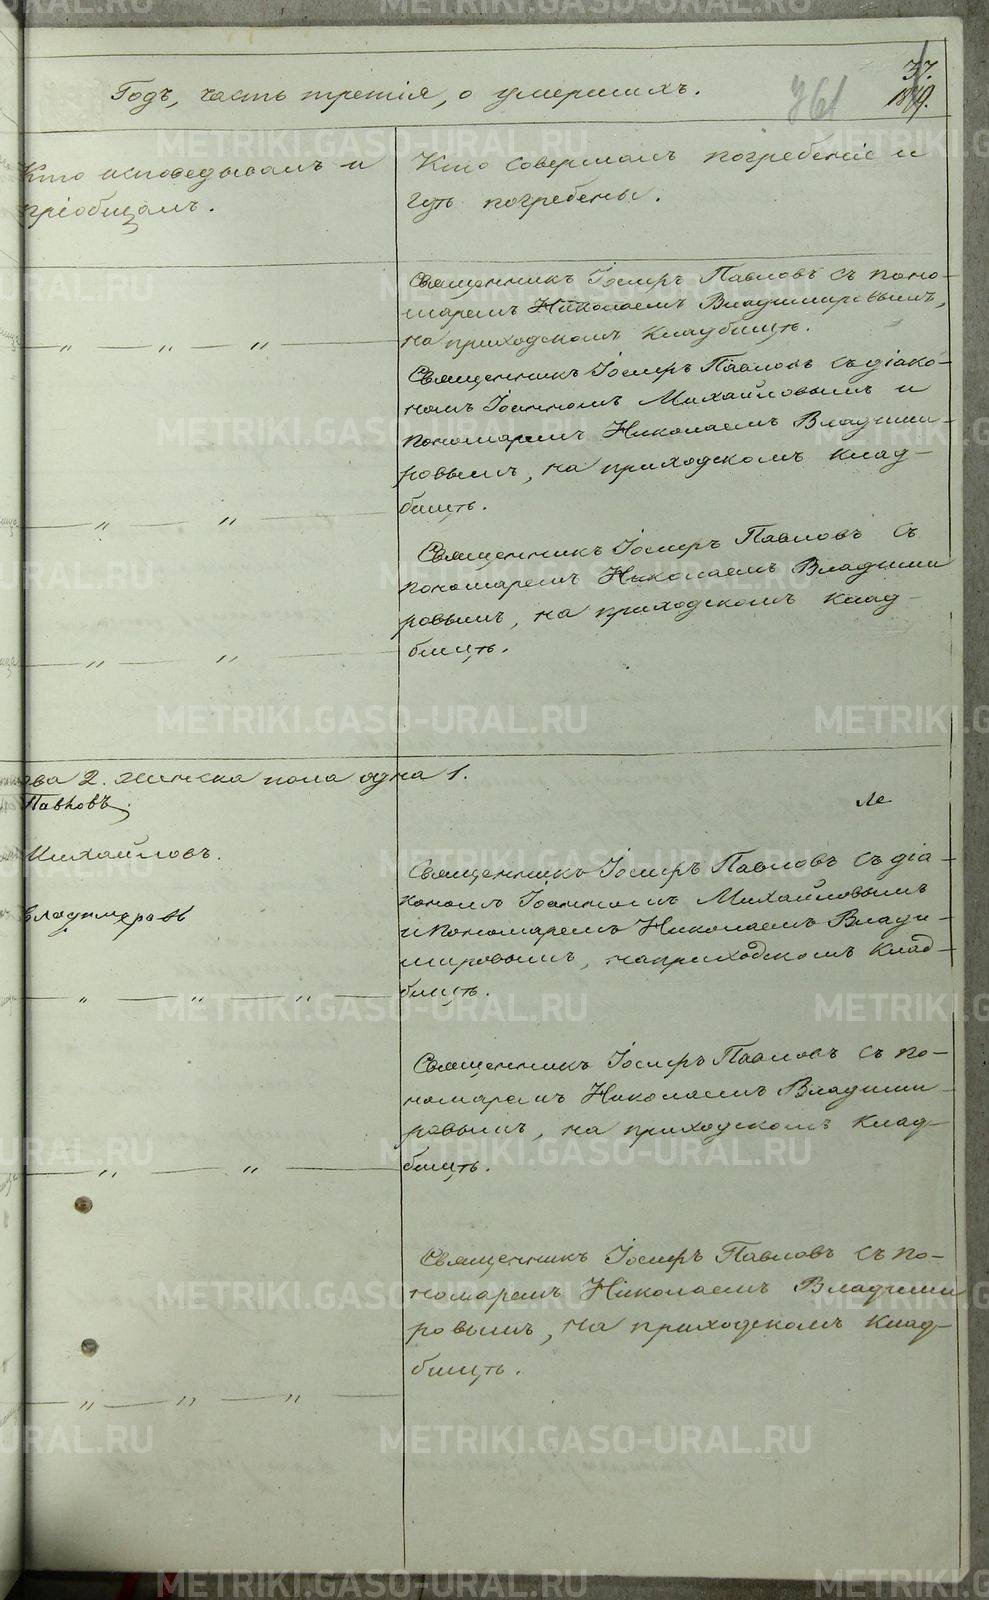 37.
761
Годъ, часть третія, о умершихъ.
Кто исповѣдывалъ и
пріобщалъ.
Кто совершалъ погребеніе и
гдѣ погребены.
Священникъ Іосифъ Павловъ съ поно-
маремъ Николаемъ Владимировымъ,
на приходскомъ кладбищѣ.
Священникъ Іосифъ Павловъ съ діако-
номъ Іоанномъ Михайловымъ и
пономаремъ Николаемъ Владими-
ровымъ, на приходскомъ клад-
бищѣ.
Священникъ Іосифъ Павловъ съ
пономаремъ Николаемъ Владими
ровымъ, на приходскомъ клад-
бищѣ.
два 2. женска пола одна 1.
Павловъ.
Михайловъ.
Владимеровъ
Священникъ Іосифъ Павловъ съ діа-
кономъ Іоанномъ Михайловымъ
и пономаремъ Николаемъ Влади-
мировымъ, на приходскомъ клад-
бищѣ.
Священникъ Іосифъ Павловъ съ по-
номаремъ Николаемъ Владими-
ровымъ, на приходскомъ клад-
бищѣ.
Священникъ Іосифъ Павловъ съ по-
номаремъ Николаемъ Владими
ровымъ, на приходскомъ клад-
бищѣ.
METRIKI.GASO-URAL.RU